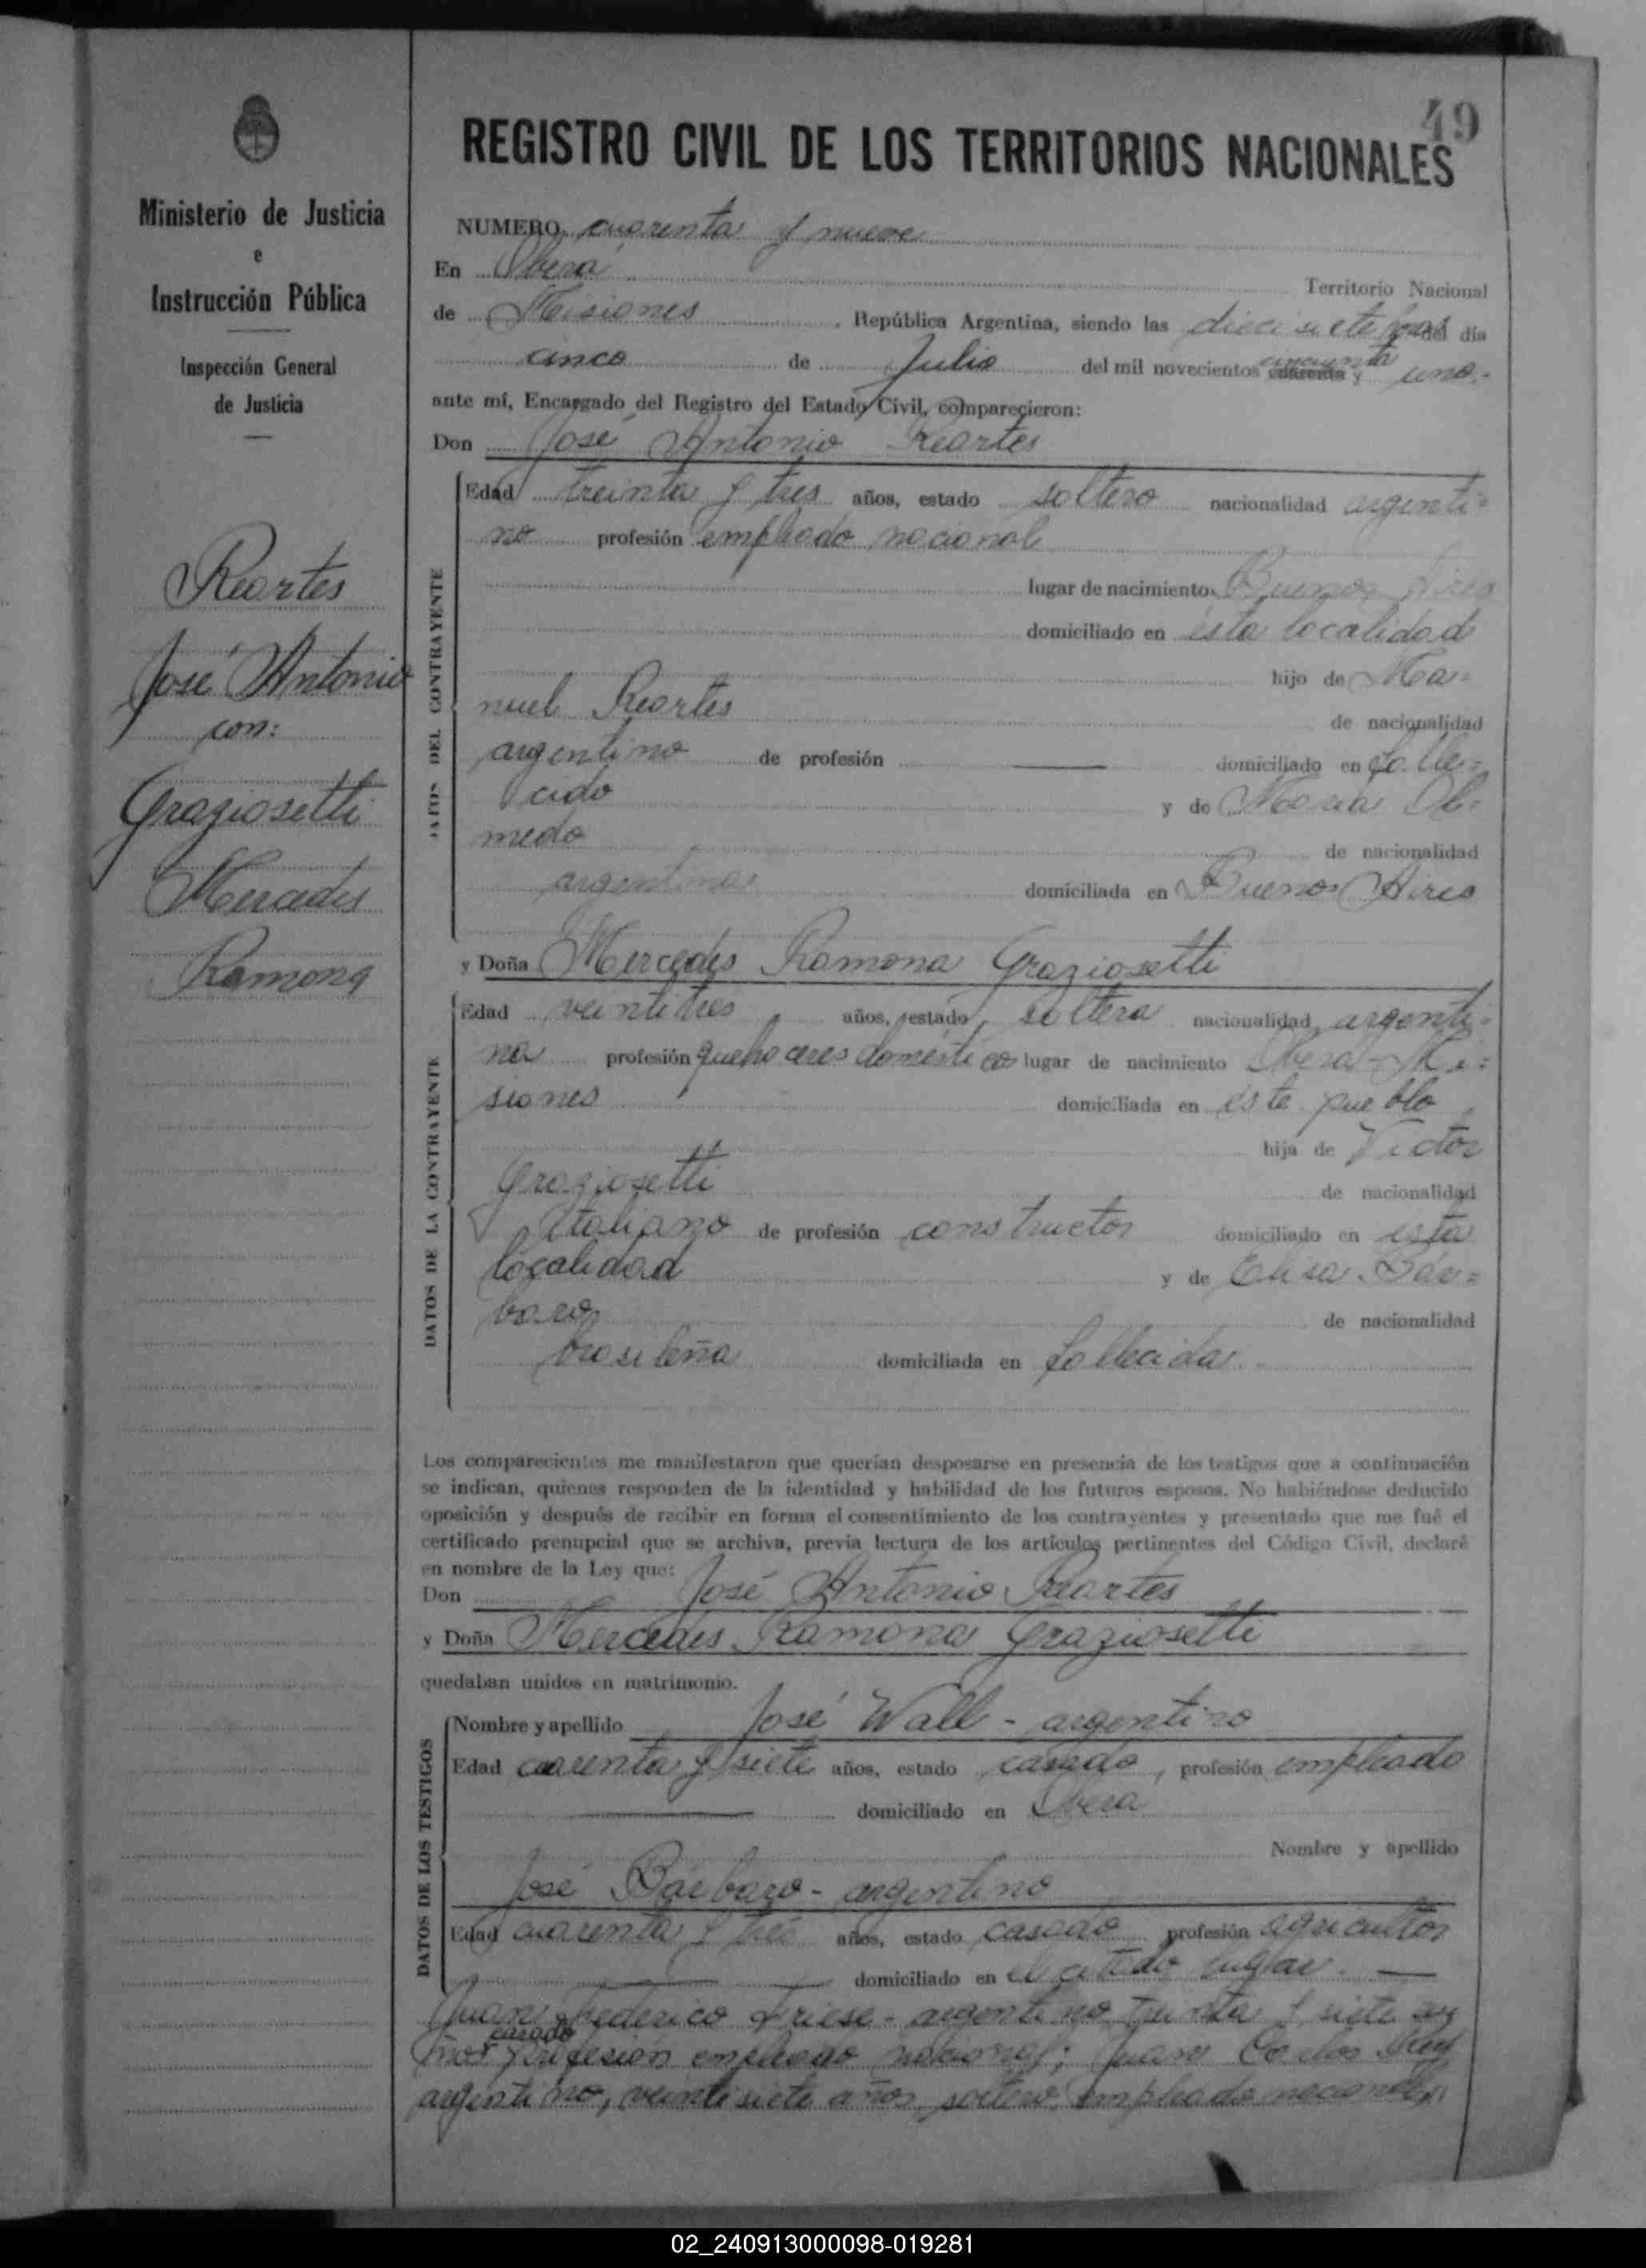 49
REGISTRO CIVIL DE LOS TERRITORIOS NACIONALES
Ministerio de Justicia
e
Instrucción Pública
Inspección General
de Justicia
Reartes
José Antonio
con:
Graziosetti
Mercedes
Ramona
NUMERO cuarenta y nueve
En Oberá Territorio Nacional
de Misiones, República Argentina, siendo las diecisiete horas del día
cinco de Julio del mil novecientos cincuenta y uno.-
ante mí, Encargado del Registro del Estado Civil, comparecieron:
Don José Antonio Reartes
DATOS DEL CONTRAYENTE
Edad treinta y tres años, estado soltero nacionalidad argenti=
no profesión empleado nacional
lugar de nacimiento Buenos Aires
domiciliado en esta localidad
hijo de Ma=
nuel Reartes de nacionalidad
argentino de profesión — domiciliado en falle=
cido y de María Ol=
medo de nacionalidad
argentina domiciliada en Buenos Aires
y Doña Mercedes Ramona Graziosetti
DATOS DE LA CONTRAYENTE
Edad veintitres años, estado soltera nacionalidad argenti=
na profesión quehaceres domésticos lugar de nacimiento Oberá-Mi=
siones domiciliada en éste pueblo
hija de Victor
Graziosetti de nacionalidad
italiano de profesión constructor domiciliado en esta
localidad y de Elisa Bár=
baro de nacionalidad
brasileña domiciliada en fallecida.
Los comparecientes me manifestaron que querían desposarse en presencia de los testigos que a continuación
se indican, quienes responden de la identidad y habilidad de los futuros esposos. No habiéndose deducido
oposición y después de recibir en forma el consentimiento de los contrayentes y presentado que me fué el
certificado prenupcial que se archiva, previa lectura de los artículos pertinentes del Código Civil, declaré
en nombre de la Ley que:
Don José Antonio Reartes
y Doña Mercedes Ramona Graziosetti
quedaban unidos en matrimonio.
DATOS DE LOS TESTIGOS
Nombre y apellido José Wall - argentino
Edad cuarenta y siete años, estado casado, profesión empleado
— domiciliado en Oberá
Nombre y apellido
José Bárbaro - argentino
Edad cuarenta y tres años, estado casado profesión agricultor
— domiciliado en el citado lugar. —
Juan Federico Friese - argentino treinta y siete a
ños casado profesion empleado nacional; Juan Carlos
argentino, veintisiete años, soltero, empleado nacional,
02_240913000098-019281